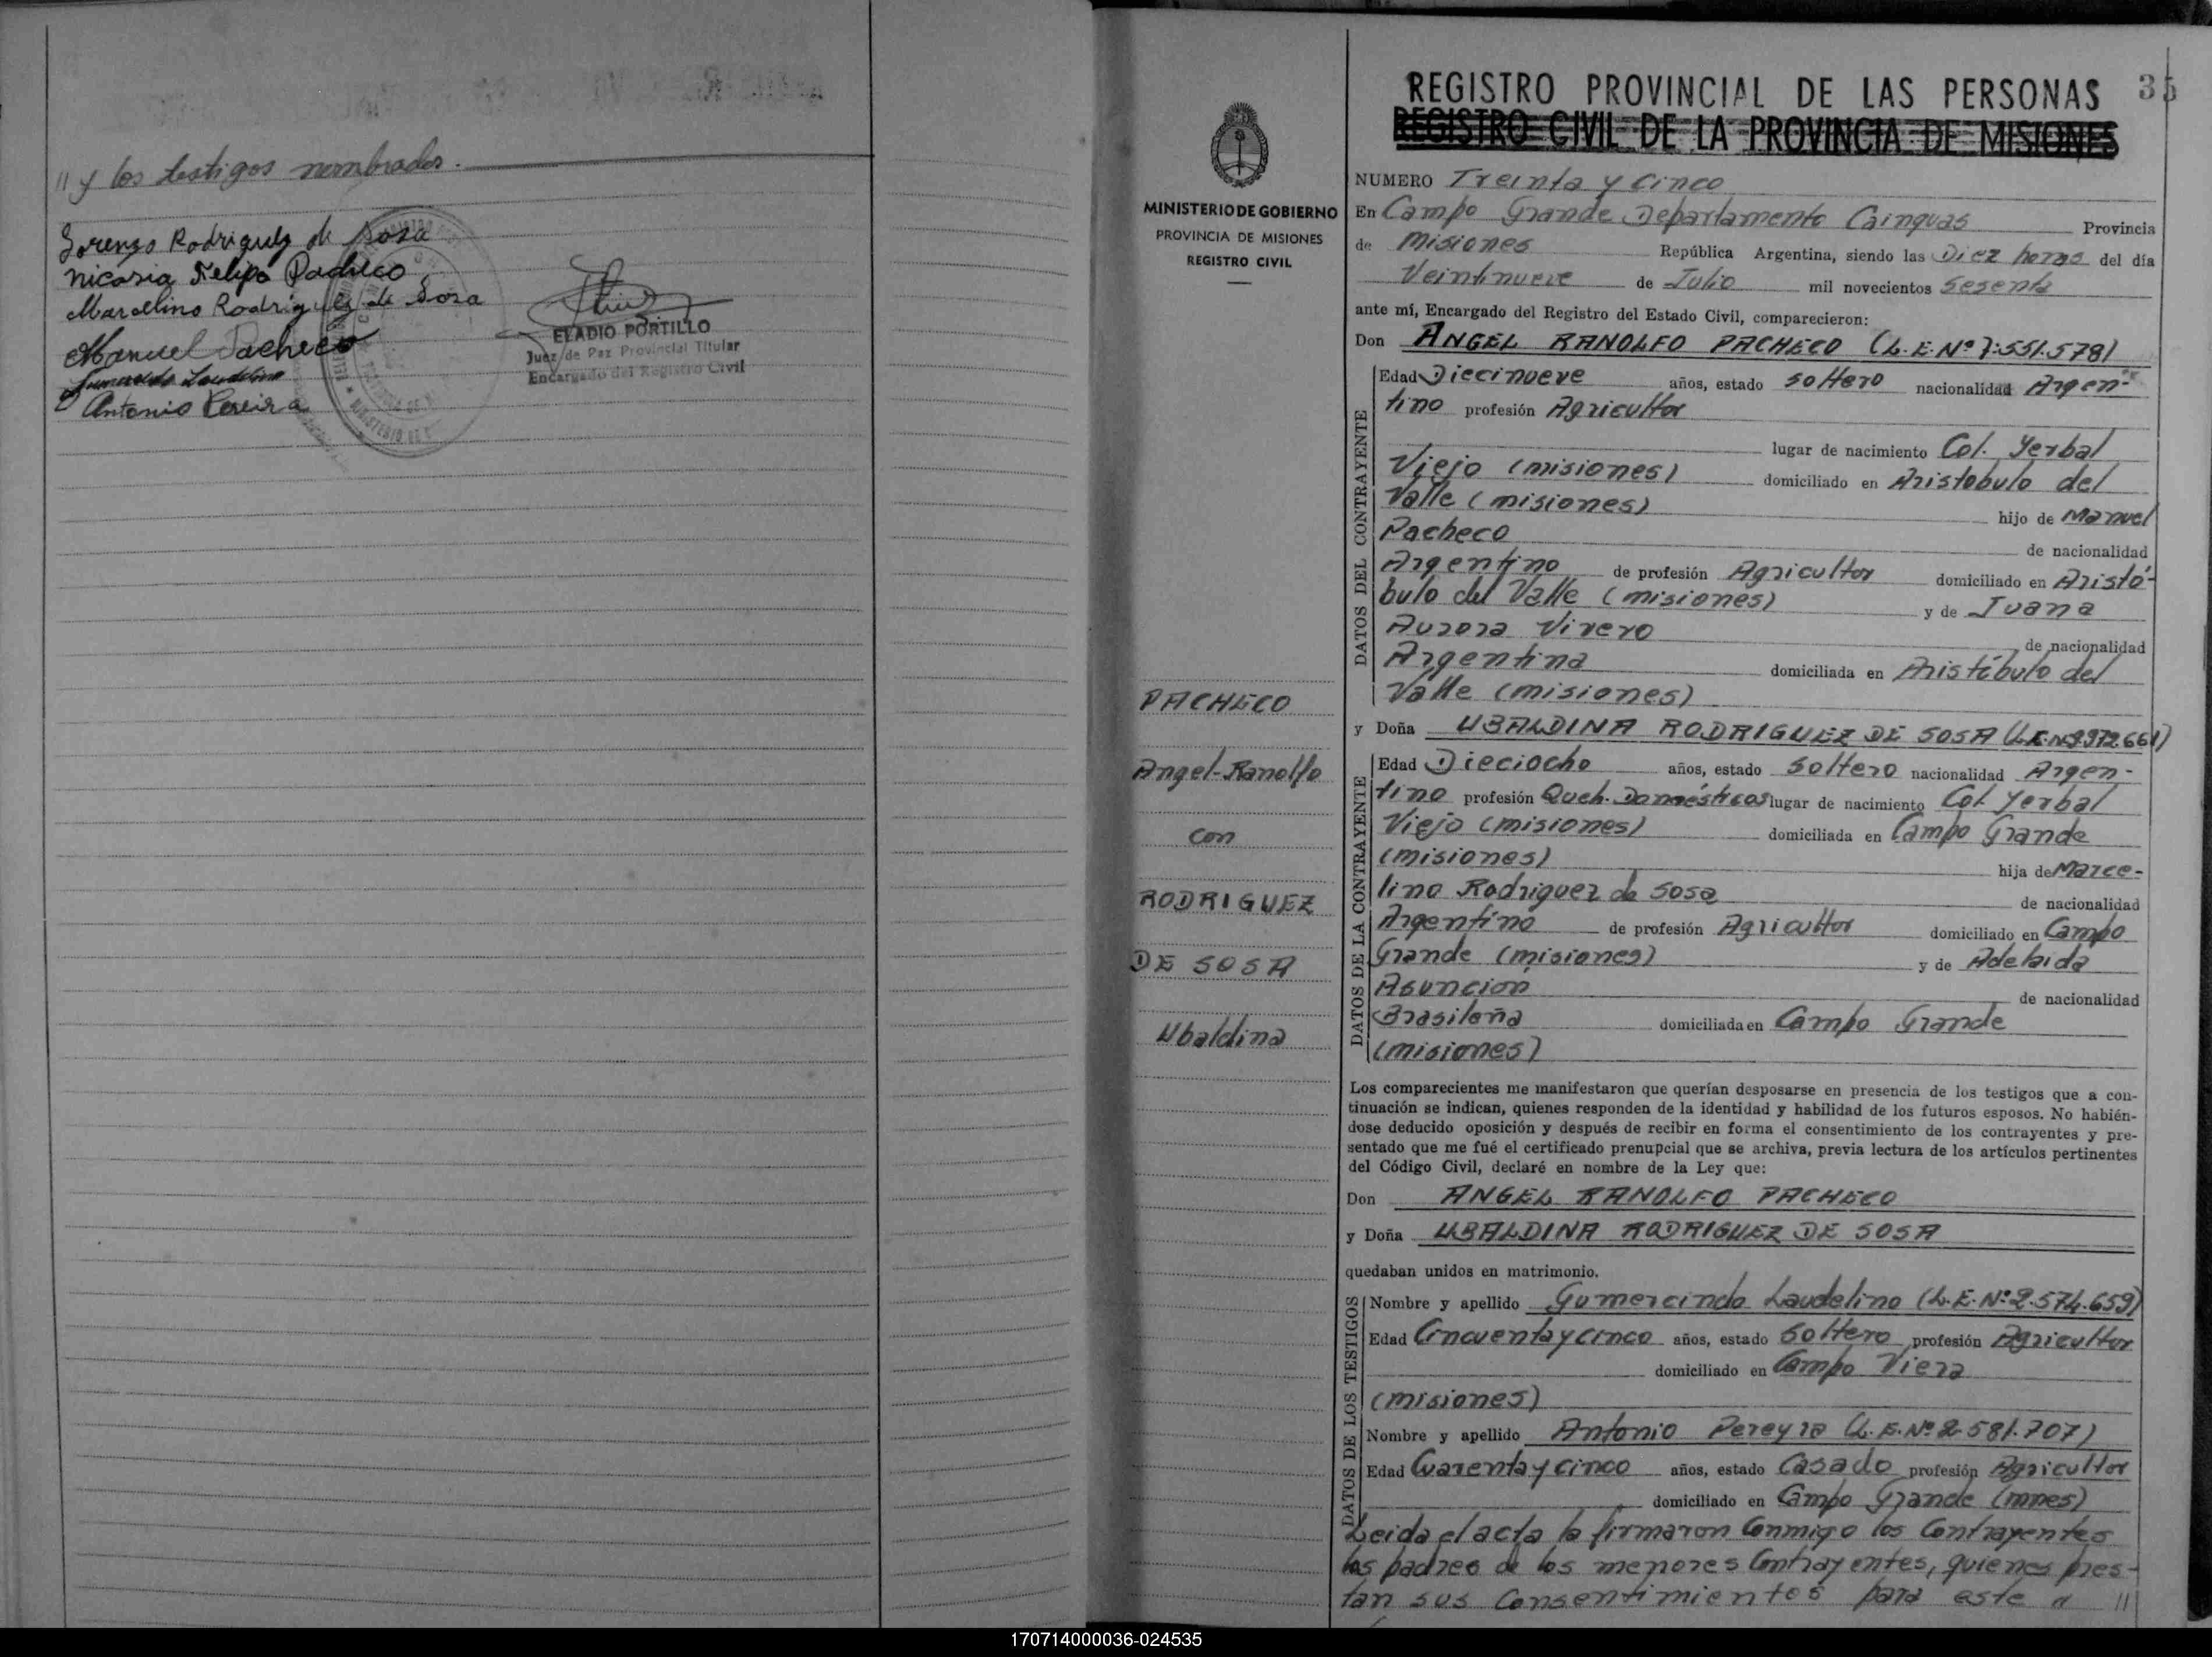 " y los testigos nombrados.
Lorenzo Rodriguez de Sosa
Nicasia Felipa Pacheco
Marcelino Rodriguez de Sosa
Manuel Pacheco
Gumercindo Laudelino
Antonio Pereira
ELADIO PORTILLO
Juez de Paz Provincial Titular
Encargado del Registro Civil
MINISTERIO DE GOBIERNO
PROVINCIA DE MISIONES
REGISTRO CIVIL
PACHECO
Angel-Ranolfo
con
RODRIGUEZ
DE SOSA
Ubaldina
REGISTRO PROVINCIAL DE LAS PERSONAS 35
REGISTRO CIVIL DE LA PROVINCIA DE MISIONES
NUMERO Treinta y Cinco
En Campo Grande Departamento Cainguas Provincia
de Misiones República Argentina, siendo las Diez horas del día
Veintinueve de Julio mil novecientos Sesenta
ante mí, Encargado del Registro del Estado Civil, comparecieron:
Don ANGEL RANOLFO PACHECO (L.E.Nº 7.551.578)
DATOS DEL CONTRAYENTE
Edad Diecinueve años, estado soltero nacionalidad Argen-
tino profesión Agricultor
lugar de nacimiento Col. Yerbal
Viejo (misiones) domiciliado en Aristobulo del
Valle (misiones) hijo de Manuel
Pacheco de nacionalidad
Argentino de profesión Agricultor domiciliado en Aristó-
bulo del Valle (misiones) y de Juana
Aurora Vivero de nacionalidad
Argentina domiciliada en Aristóbulo del
Valle (misiones)
y Doña UBALDINA RODRIGUEZ DE SOSA (L.E.Nº9.972.661)
DATOS DE LA CONTRAYENTE
Edad Dieciocho años, estado soltero nacionalidad Argen-
tino profesión Queh. Domésticos lugar de nacimiento Col. Yerbal
Viejo (misiones) domiciliada en Campo Grande
(misiones) hija de Marce-
lino Rodriguez de Sosa de nacionalidad
Argentino de profesión Agricultor domiciliado en Campo
Grande (misiones) y de Adelaida
Asuncion de nacionalidad
Brasileña domiciliada en Campo Grande
(misiones)
Los comparecientes me manifestaron que querían desposarse en presencia de los testigos que a con-
tinuación se indican, quienes responden de la identidad y habilidad de los futuros esposos. No habién-
dose deducido oposición y después de recibir en forma el consentimiento de los contrayentes y pre-
sentado que me fué el certificado prenupcial que se archiva, previa lectura de los artículos pertinentes
del Código Civil, declaré en nombre de la Ley que:
Don ANGEL RANOLFO PACHECO
y Doña UBALDINA RODRIGUEZ DE SOSA
quedaban unidos en matrimonio.
DATOS DE LOS TESTIGOS
Nombre y apellido Gumercindo Laudelino (L.E.Nº2.574.659)
Edad Cincuenta y cinco años, estado Soltero profesión Agricultor
domiciliado en Campo Viera
(misiones)
Nombre y apellido Antonio Pereyra (L.E.Nº2.581.707)
Edad Cuarenta y cinco años, estado Casado profesión Agricultor
domiciliado en Campo Grande (mnes)
Leida el acta la firmaron Conmigo los Contrayentes
los padres de los menores Contrayentes, quienes pres-
tan sus Consentimientos para este "
170714000036-024535